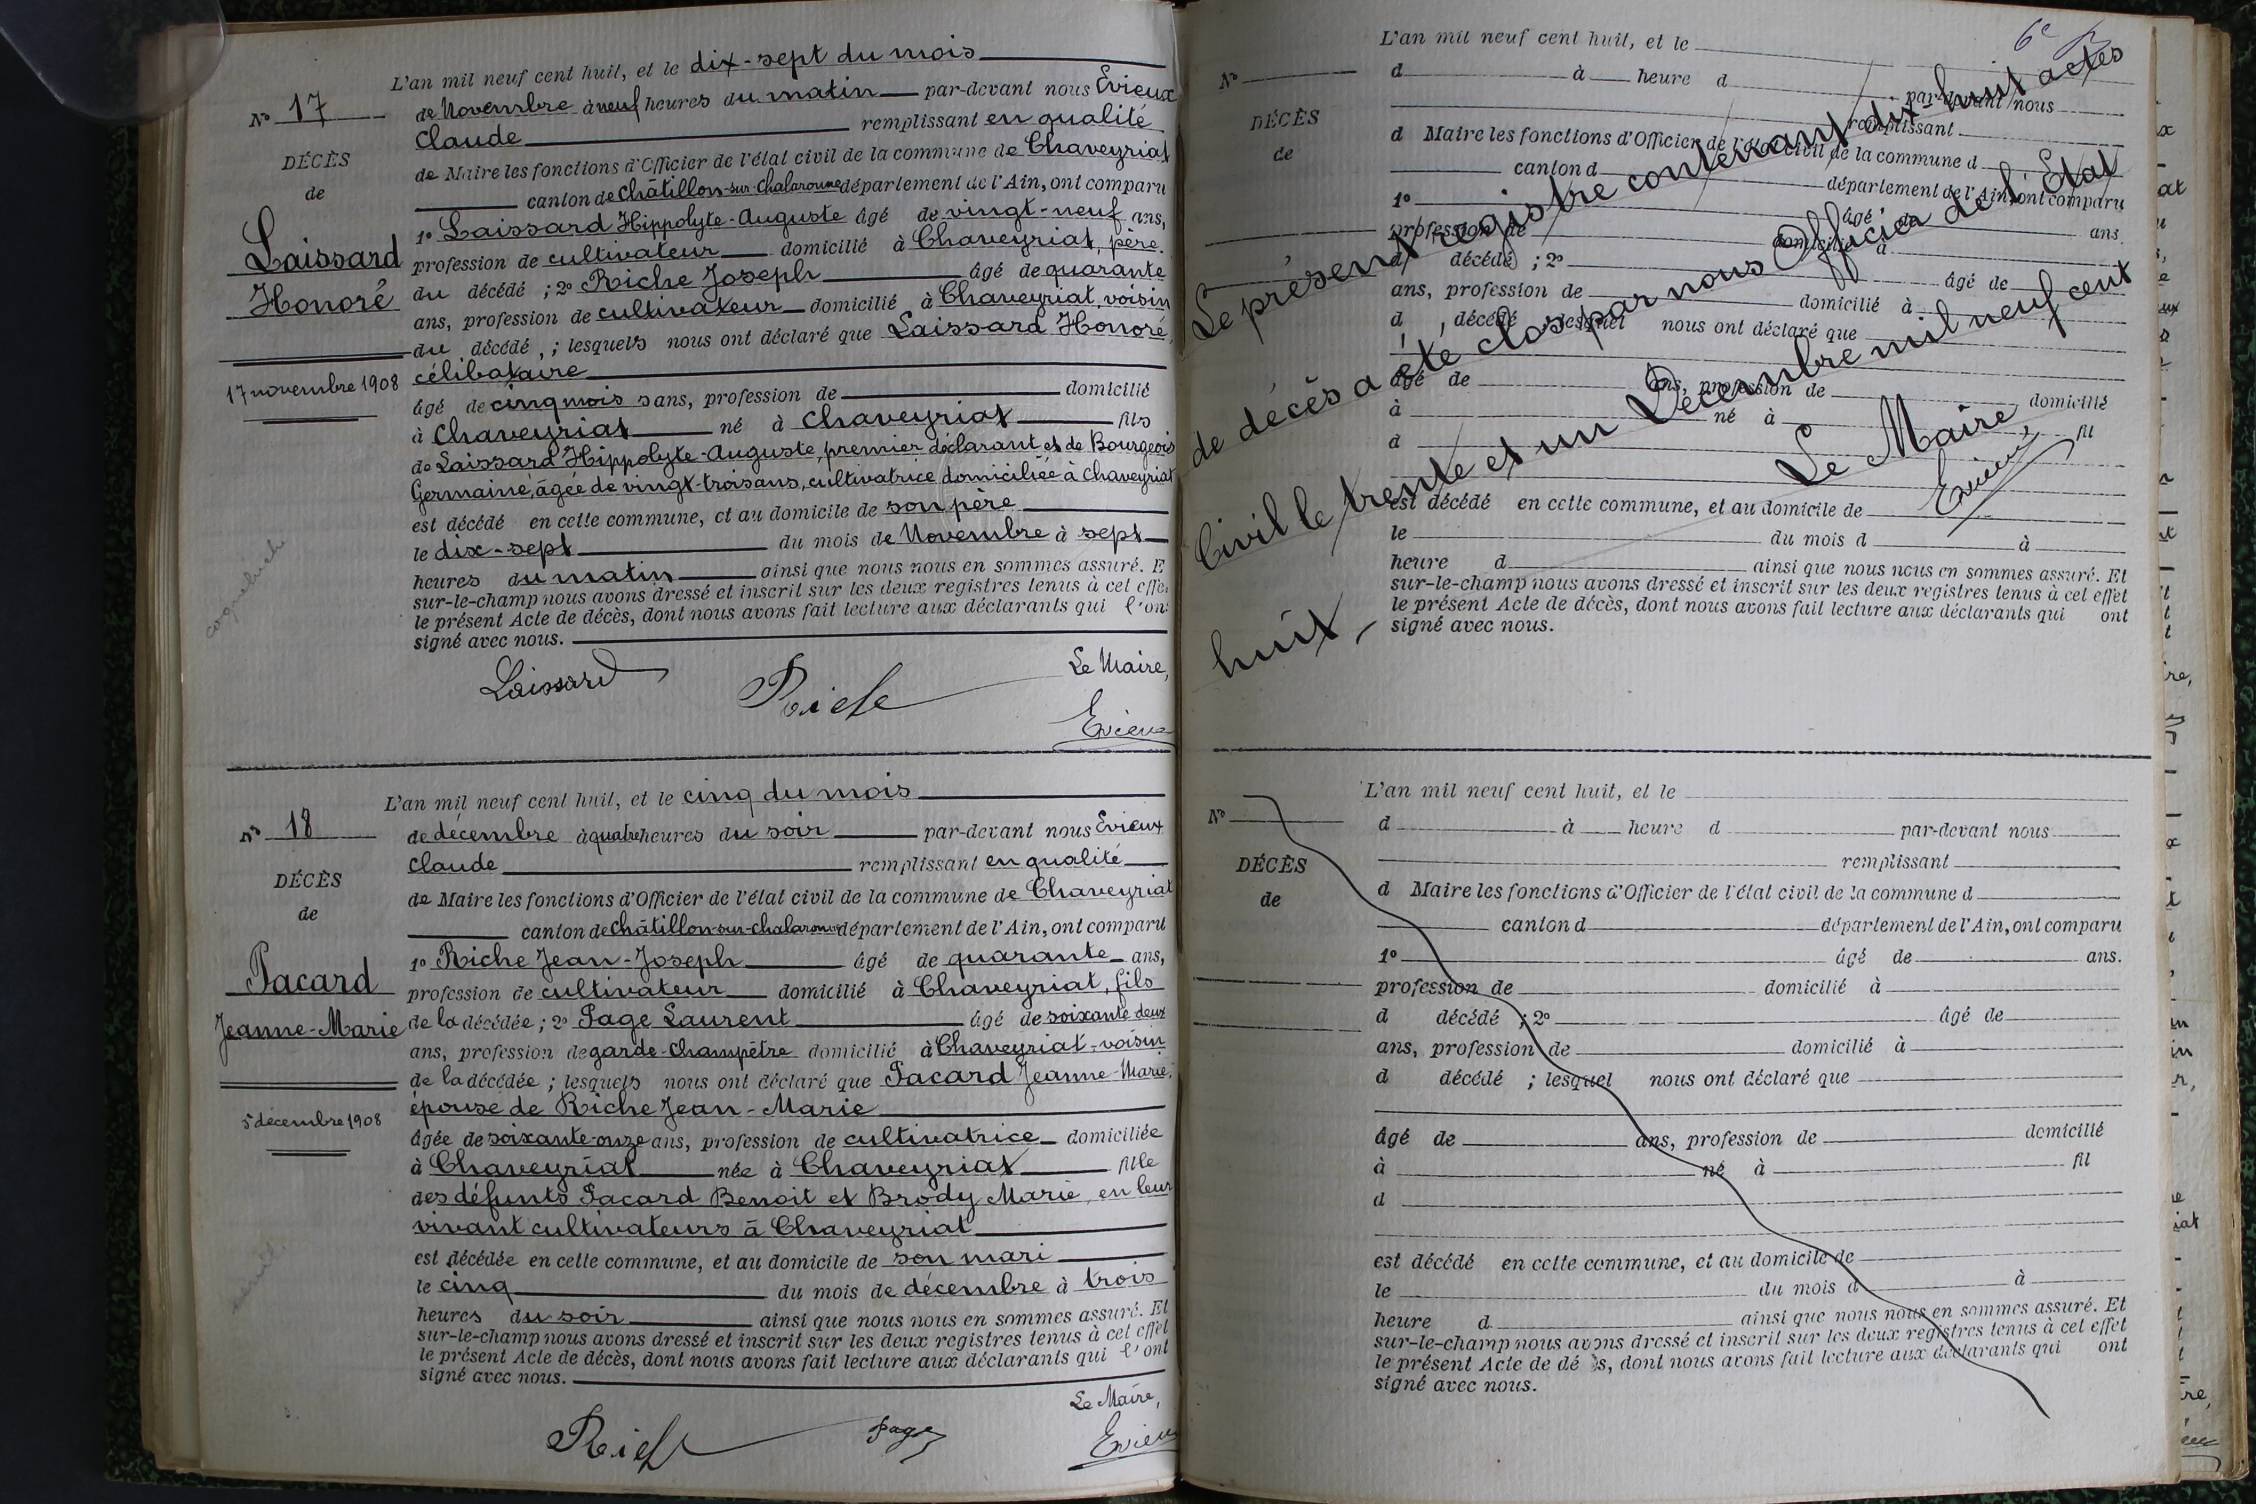 L'an mil neuf cent huit, et le dix-sept du mois
N° 17
de Novembre à neuf heures du matin par-devant nous Evieux
Claude remplissant en qualité
DÉCÈS
de Maire les fonctions d'Officier de l'état civil de la commune de Chaveyriat
de
canton de Châtillon-sur-Chalaronne département de l'Ain, ont comparu
1° Laissard Hippolyte-Auguste âgé de vingt-neuf ans,
Laissard
profession de cultivateur domicilié à Chaveyriat, père
Honoré
du décédé ; 2° Riche Joseph âgé de quarante
ans, profession de cultivateur domicilié à Chaveyriat, voisin
du décédé, ; lesquels nous ont déclaré que Laissard Honoré,
17 novembre 1908
célibataire
âgé de cinq mois sans, profession de domicilié
à Chaveyriat né à Chaveyriat fils
de Laissard Hippolyte-Auguste, premier déclarant et de Bourgeois
Germaine, âgée de vingt-trois ans, cultivatrice domiciliée à Chaveyriat
est décédé en cette commune, et au domicile de son père
le dix-sept du mois de Novembre à sept
heures du matin ainsi que nous nous en sommes assuré. E
sur-le-champ nous avons dressé et inscrit sur les deux registres tenus à cet effe
le présent Acte de décès, dont nous avons fait lecture aux déclarants qui l'on
signé avec nous.
coqueluche
Laissard Riche Le Maire,
Evieux
L'an mil neuf cent huit, et le cinq du mois
N° 18
de décembre à quatre heures du soir par-devant nous Evieux
Claude remplissant en qualité
DÉCÈS
de Maire les fonctions d'Officier de l'état civil de la commune de Chaveyriat
de
canton de Châtillon-sur-Chalaronne département de l'Ain, ont comparu
1° Riche Jean-Joseph âgé de quarante ans,
Pacard
profession de cultivateur domicilié à Chaveyriat, fils
Jeanne-Marie
de la décédée ; 2° Page Laurent âgé de soixante-deux
ans, profession de garde-champêtre domicilié à Chaveyriat, voisin
de la décédée ; lesquels nous ont déclaré que Pacard Jeanne-Marie,
5 décembre 1908
épouse de Riche Jean-Marie
âgée de soixante-onze ans, profession de cultivatrice domiciliée
à Chaveyriat née à Chaveyriat fille
des défunts Pacard Benoit et Brody Marie, en leur
vivant cultivateurs à Chaveyriat
est décédée en cette commune, et au domicile de son mari
le cinq du mois de décembre à trois
heures du soir ainsi que nous nous en sommes assuré. Et
sur-le-champ nous avons dressé et inscrit sur les deux registres tenus à cet effet
le présent Acte de décès, dont nous avons fait lecture aux déclarants qui l'ont
signé avec nous.
Le Maire,
Riche Page Evieux
L'an mil neuf cent huit, et le
N°
d à heure d par-devant nous
remplissant
DÉCÈS
d Maire les fonctions d'Officier de l'état civil de la commune d
de
canton d département de l'Ain, ont comparu
1° âgé de ans
profession de domicilié à
d décédé ; 2° âgé de
ans, profession de domicilié à
d décédé ; lesquel nous ont déclaré que
âgé de ans, profession de domicilié
à né à fil
d
est décédé en cette commune, et au domicile de
le du mois d à
heure d ainsi que nous nous en sommes assuré. Et
sur-le-champ nous avons dressé et inscrit sur les deux registres tenus à cet effet
le présent Acte de décès, dont nous avons fait lecture aux déclarants qui ont
signé avec nous.
Le présent registre contenant dix-huit actes
de décès a été clos par nous Officier de l'Etat
Civil le trente et un Décembre mil neuf cent
huit
Le Maire,
Evieux
L'an mil neuf cent huit, et le
N°
d à heure d par-devant nous
remplissant
DÉCÈS
d Maire les fonctions d'Officier de l'état civil de la commune d
de
canton d département de l'Ain, ont comparu
1° âgé de ans.
profession de domicilié à
d décédé ; 2° âgé de
ans, profession de domicilié à
d décédé ; lesquel nous ont déclaré que
âgé de ans, profession de domicilié
à né à fil
d
est décédé en cette commune, et au domicile de
le du mois d à
heure d ainsi que nous nous en sommes assuré. Et
sur-le-champ nous avons dressé et inscrit sur les deux registres tenus à cet effet
le présent Acte de dé s, dont nous avons fait lecture aux déclarants qui ont
signé avec nous.